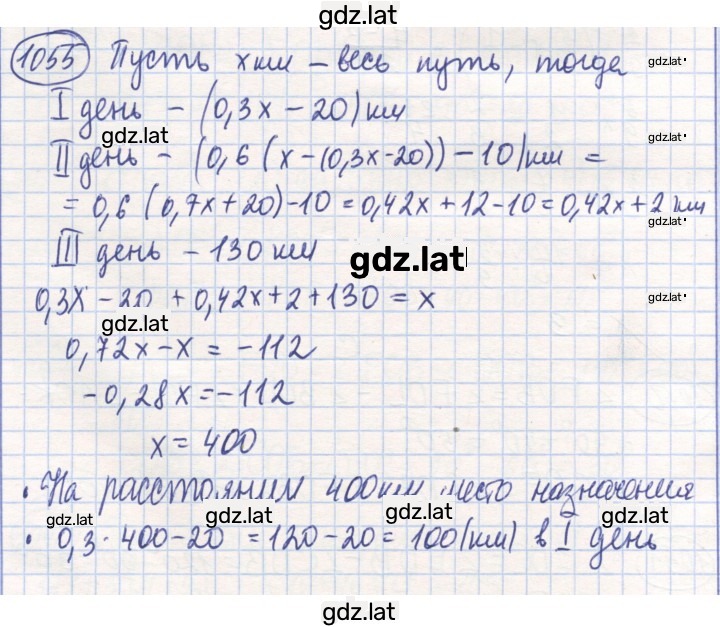 gdz.lat
1055 Пусть x км – весь путь, тогда gdz.lat
I день – (0,3x – 20) км
gdz.lat gdz.lat
II день – (0,6 (x-(0,3x-20)) – 10) км =
= 0,6 (0,7x+20)-10 = 0,42x+12-10 = 0,42x+2 км
III день – 130 км
gdz.lat
0,3x – 20 + 0,42x+2+130 = x gdz.lat
gdz.lat
0,72x-x = -112
-0,28x = -112
x = 400
• На расстоянии 400км место назначения
gdz.lat gdz.lat gdz.lat gdz.lat
• 0,3 · 400-20 = 120-20 = 100(км) в I день
gdz.lat